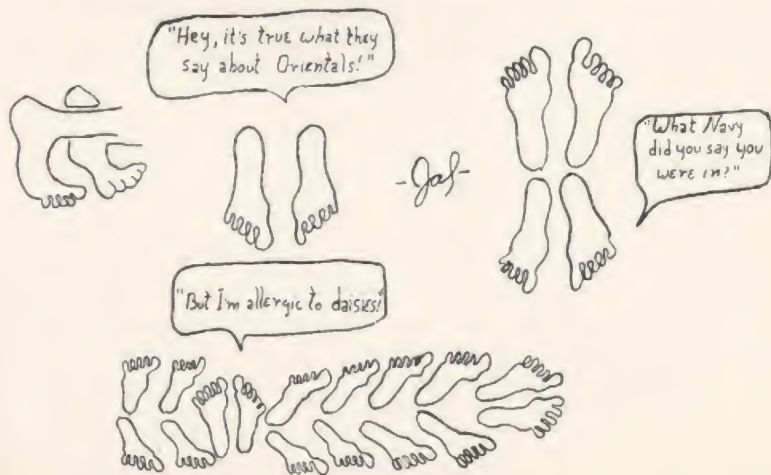 "Hey, it's true what they
say about Orientals!"
"What Navy
did you say you
were in?"
-Jal-
"But I'm allergic to daisies!